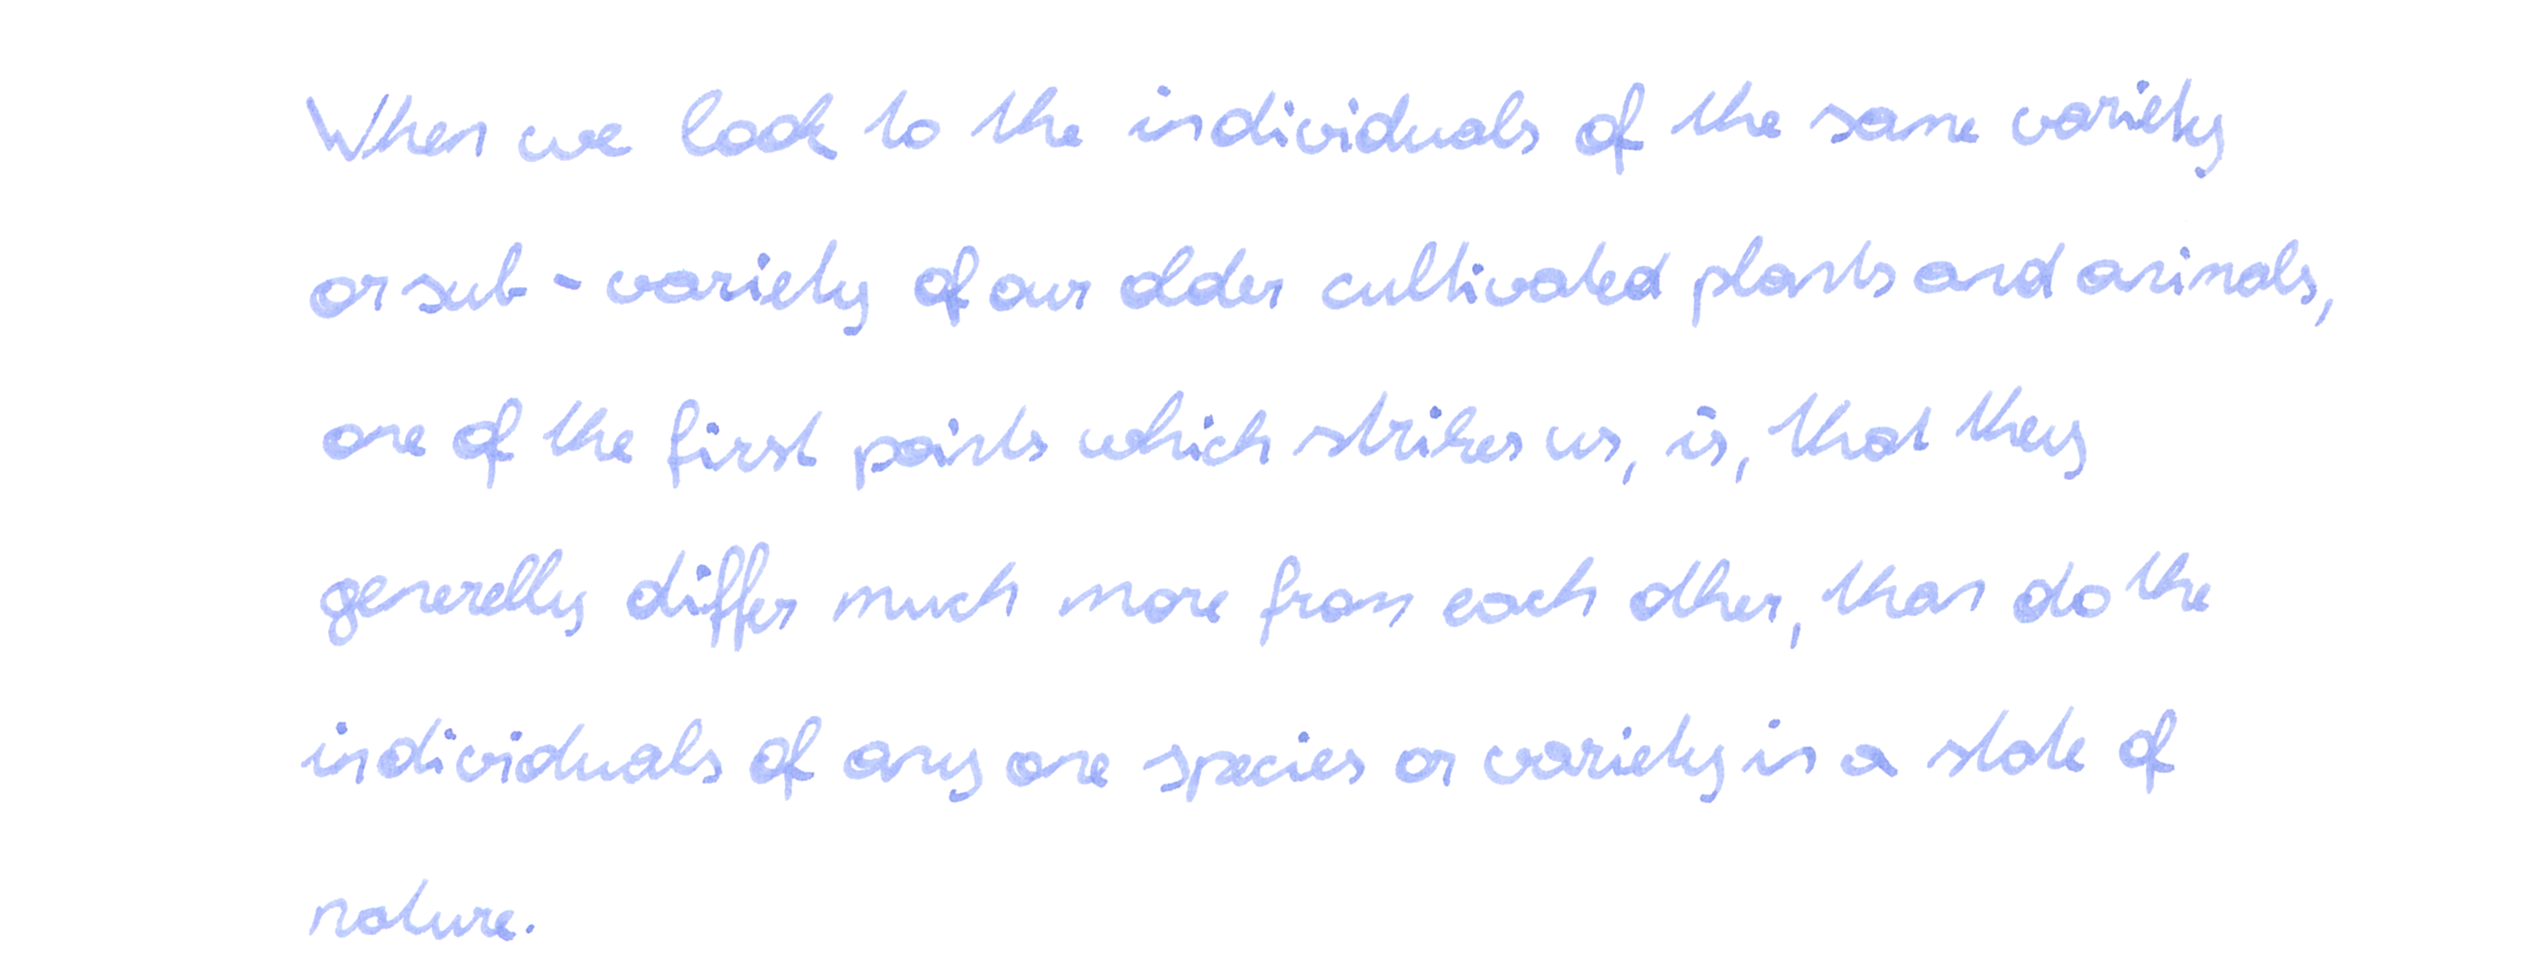 When we look to the individuals of the same variety
or sub-variety of our older cultivated plants and animals,
one of the first points which strikes us, is, that they
generally differ much more from each other, than do the
individuals of any one species or variety in a state of
nature.